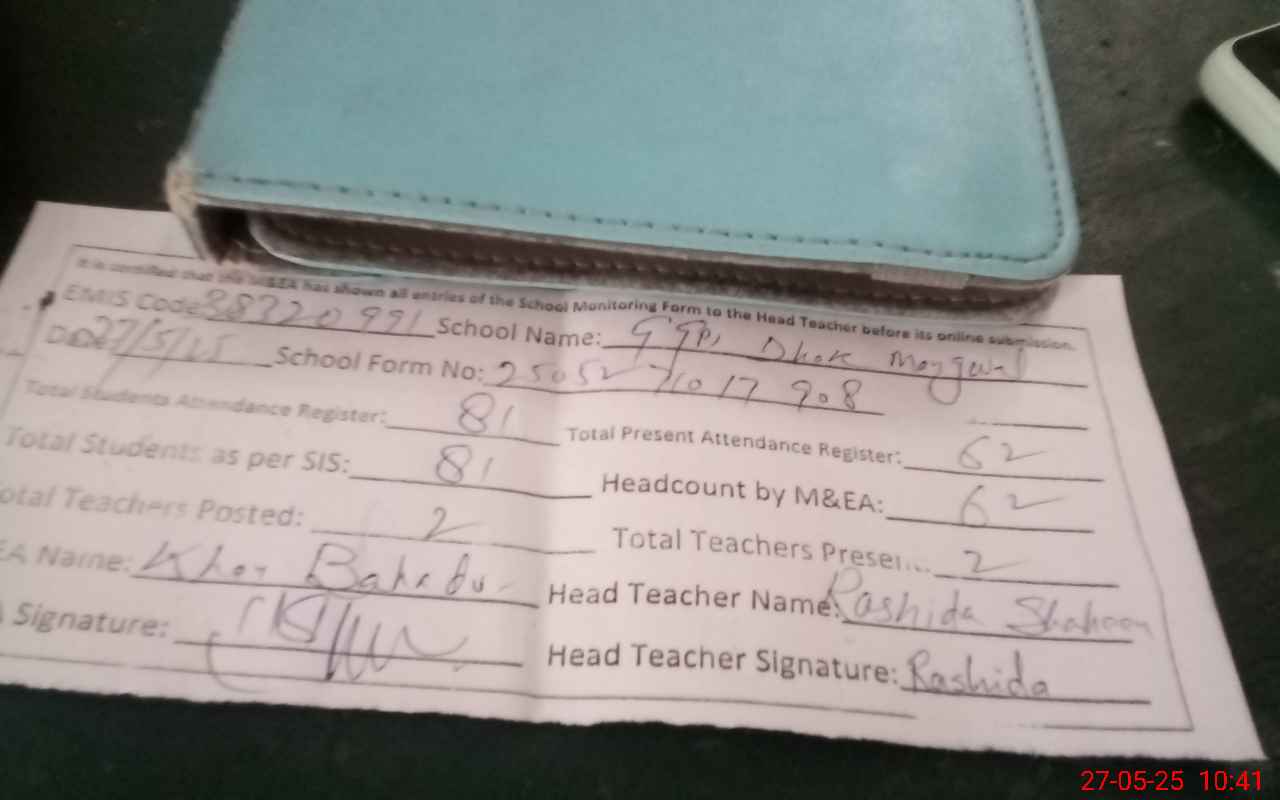 It is certified that the M&EA has shown all entries of the School Monitoring Form to the Head Teacher before its online submission.
EMIS Code 38320991 School Name: GGPS Dhok
Date 27/5/25 School Form No: 25052 71017 908
Total Students Attendance Register: 81 Total Present Attendance Register: 62
Total Students as per SIS: 81 Headcount by M&EA: 62
otal Teachers Posted: 2 Total Teachers Presen... 2
EA Name: Khan Bahadur Head Teacher Name: Rashida Shaheen
Signature: Head Teacher Signature: Rashida
27-05-25 10:41